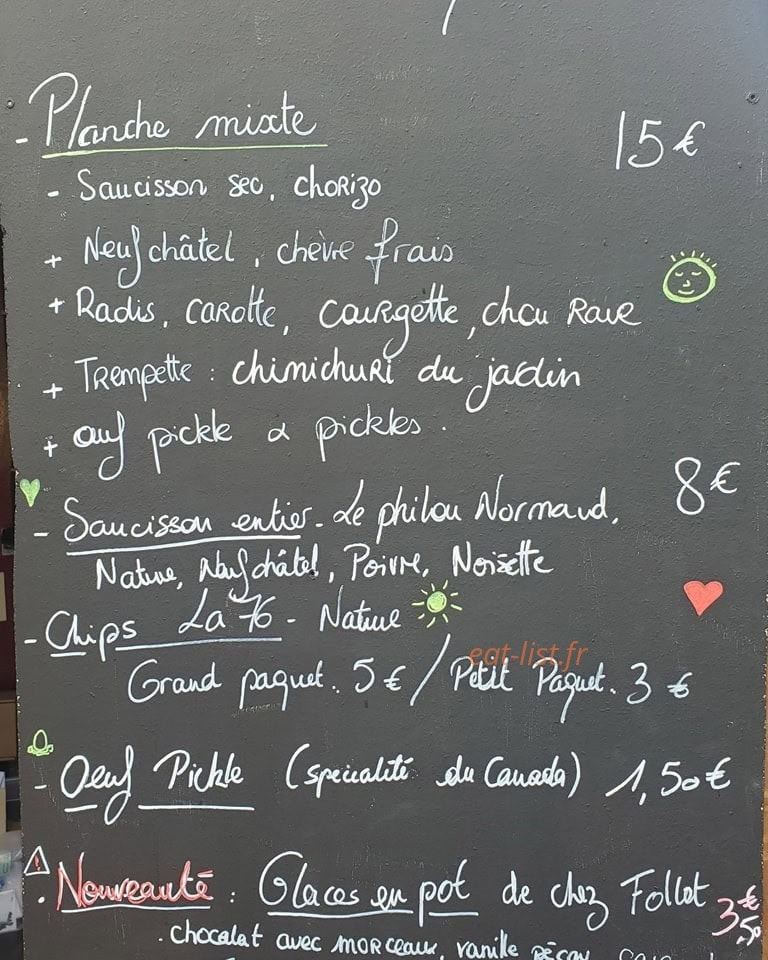 - Planche mixte 15 €
- Saucisson sec, chorizo
+ Neufchâtel, chèvre frais
+ Radis, carotte, courgette, chou rave
+ Trempette : chimichuri du jardin
+ œuf pickle & pickles.
- Saucisson entier - Le philou Normand. 8 €
Nature, Neufchâtel, Poivre, Noisette
- Chips La 76 - Nature
eat-list.fr
Grand paquet. 5 € / Petit Paquet. 3 €
- Oeuf Pickle (specialité du Canada) 1,50 €
. Nouveauté : Glaces en pot de chez Follet 3 € ,50
. chocolat avec morceaux, vanille pécan,